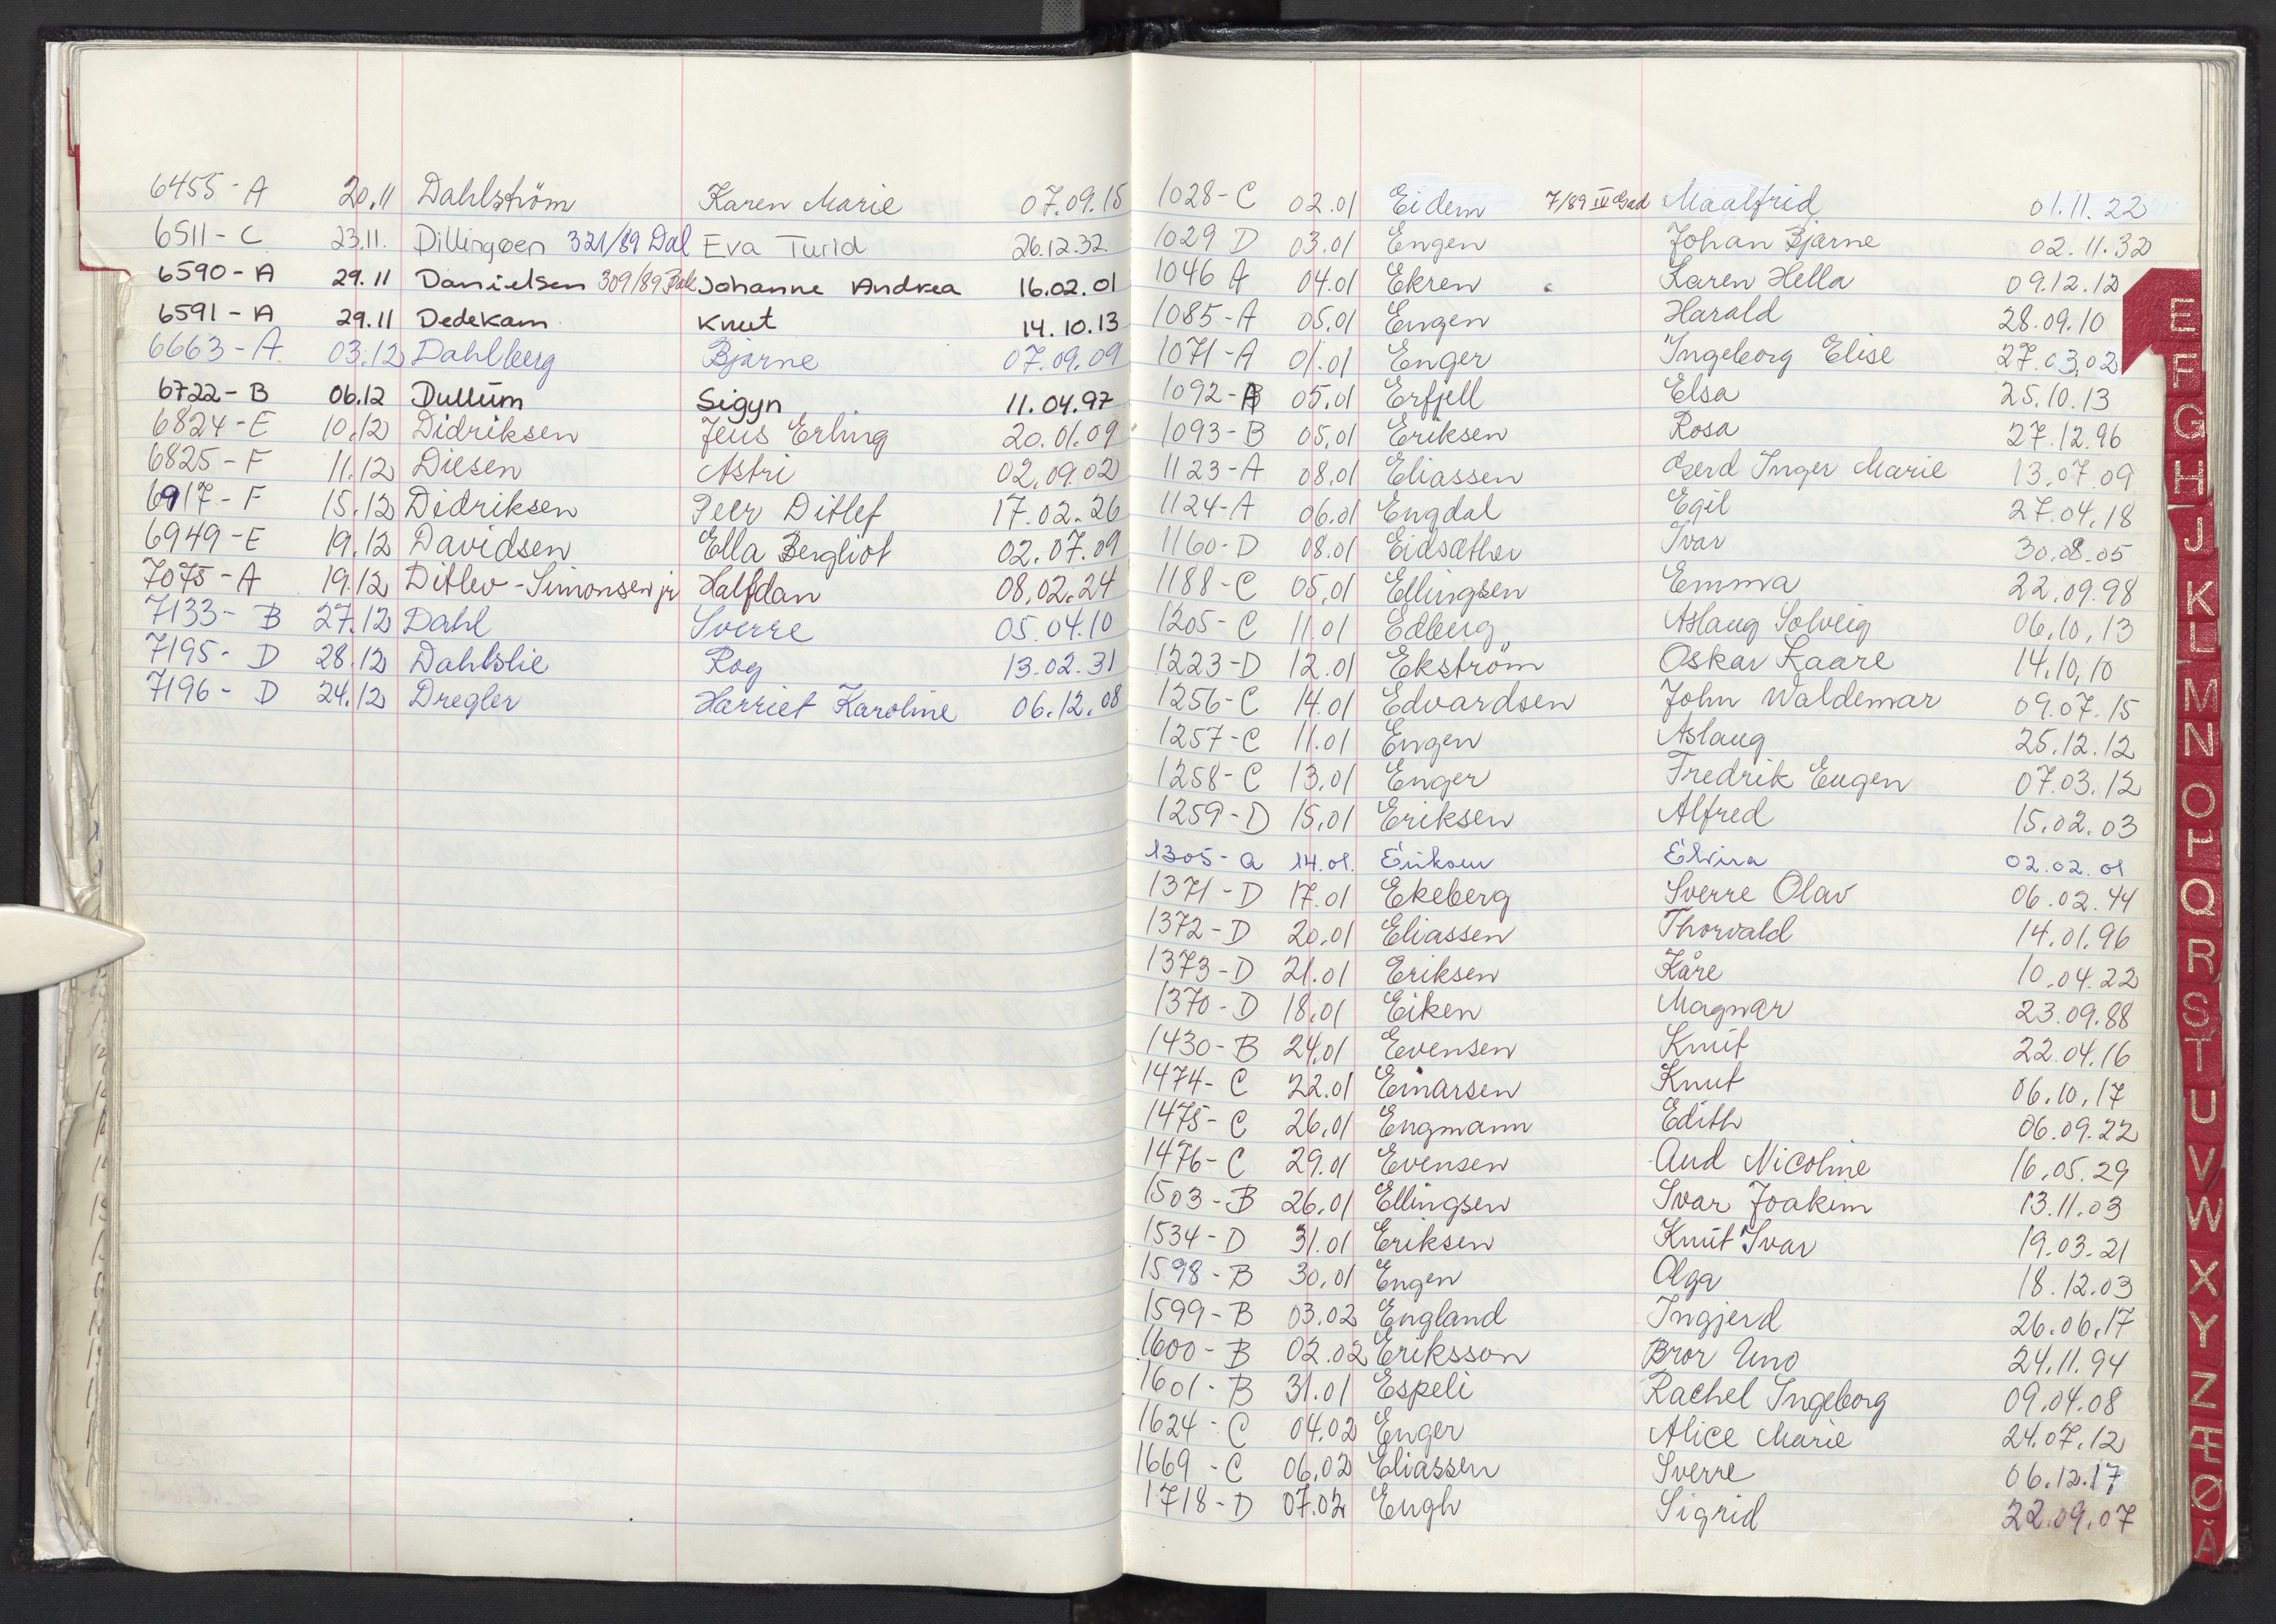 6455-A 20.11 Dahlström Karen Marie 07.09.15
6511-C 23.11. Dillingøen 321/89 Dal Eva Turid 26.12.32
6590-A 29.11 Danielsen 309/89 Johanne Andrea 16.02.01
6591-A 29.11 Dedekam Knut 14.10.13
6663-A 03.12 Dahlberg Bjarne 07.09.09
6722-B 06.12 Dullum Sigyn 11.04.97
6824-E 10.12 Didriksen Jens Erling 20.01.09
6825-F 11.12 Diesen Astri 02.09.02
6917-F 15.12 Didriksen Peer Ditlef 17.02.26
6949-E 19.12 Davidsen Ella Bergliot 02.07.09
7075-A 19.12 Ditlev-Simonsen jr Halfdan 08.02.24
7133-B 27.12 Dahl Sverre 05.04.10
7195-D 28.12 Dahlslie Roy 13.02.31
7196-D 24.12 Dregler Harriet Karoline 06.12.08
1028-C 02.01 Eidem 7/89 IV Maalfrid 01.11.22
1029 D 03.01 Engen Johan Bjarne 02.11.32
1046 A 04.01 Ekren Karen Hella 09.12.12
1085-A 05.01 Engen Harald 28.09.10
1071-A 01.01 Enger Ingeborg Elise 27.03.02
1092-A 05.01 Erfjell Elsa 25.10.13
1093-B 05.01 Eriksen Rosa 27.12.96
1123-A 08.01 Eliassen Gerd Inger Marie 13.07.09
1124-A 06.01 Engdal Egil 27.04.18
1160-D 08.01 Eidsæther Ivar 30.08.05
1188-C 05.01 Ellingsen Emma 22.09.98
1205-C 11.01 Edberg Aslaug Solveig 06.10.13
1223-D 12.01 Ekström Oskar Kaare 14.10.10
1256-C 14.01 Edvardsen John Waldemar 09.07.15
1257-C 11.01 Engen Aslaug 25.12.12
1258-C 13.01 Enger Fredrik Eugen 07.03.12
1259-D 15.01 Eriksen Alfred 15.02.03
1305-a 14.01. Eriksen Elvira 02.02.01
1371-D 17.01 Ekeberg Sverre Olav 06.02.44
1372-D 20.01 Eliassen Thorvald 14.01.96
1373-D 21.01 Eriksen Kåre 10.04.22
1370-D 18.01 Eiken Magnar 23.09.88
1430-B 24.01 Evensen Knut 22.04.16
1474-C 22.01 Einarsen Knut 06.10.17
1475-C 26.01 Engmann Edith 06.09.22
1476-C 29.01 Evensen Aud Nicoline 16.05.29
1503-B 26.01 Ellingsen Ivar Joakim 13.11.03
1534-D 31.01 Eriksen Knut Ivar 19.03.21
1598-B 30.01 Engen Olga 18.12.03
1599-B 03.02 England Ingjerd 26.06.17
1600-B 02.02 Eriksson Bror Uno 24.11.94
1601-B 31.01 Espeli Rachel Ingeborg 09.04.08
1624-C 04.02 Enger Alice Marie 24.07.12
1669-C 06.02 Eliassen Sverre 06.12.17
1718-D 07.02 Engh Sigrid 22.09.07
E
F
G
H
J
K
L
M
N
O
P
Q
R
S
T
U
V
W
X
Y
Z
Æ
Ø
Å